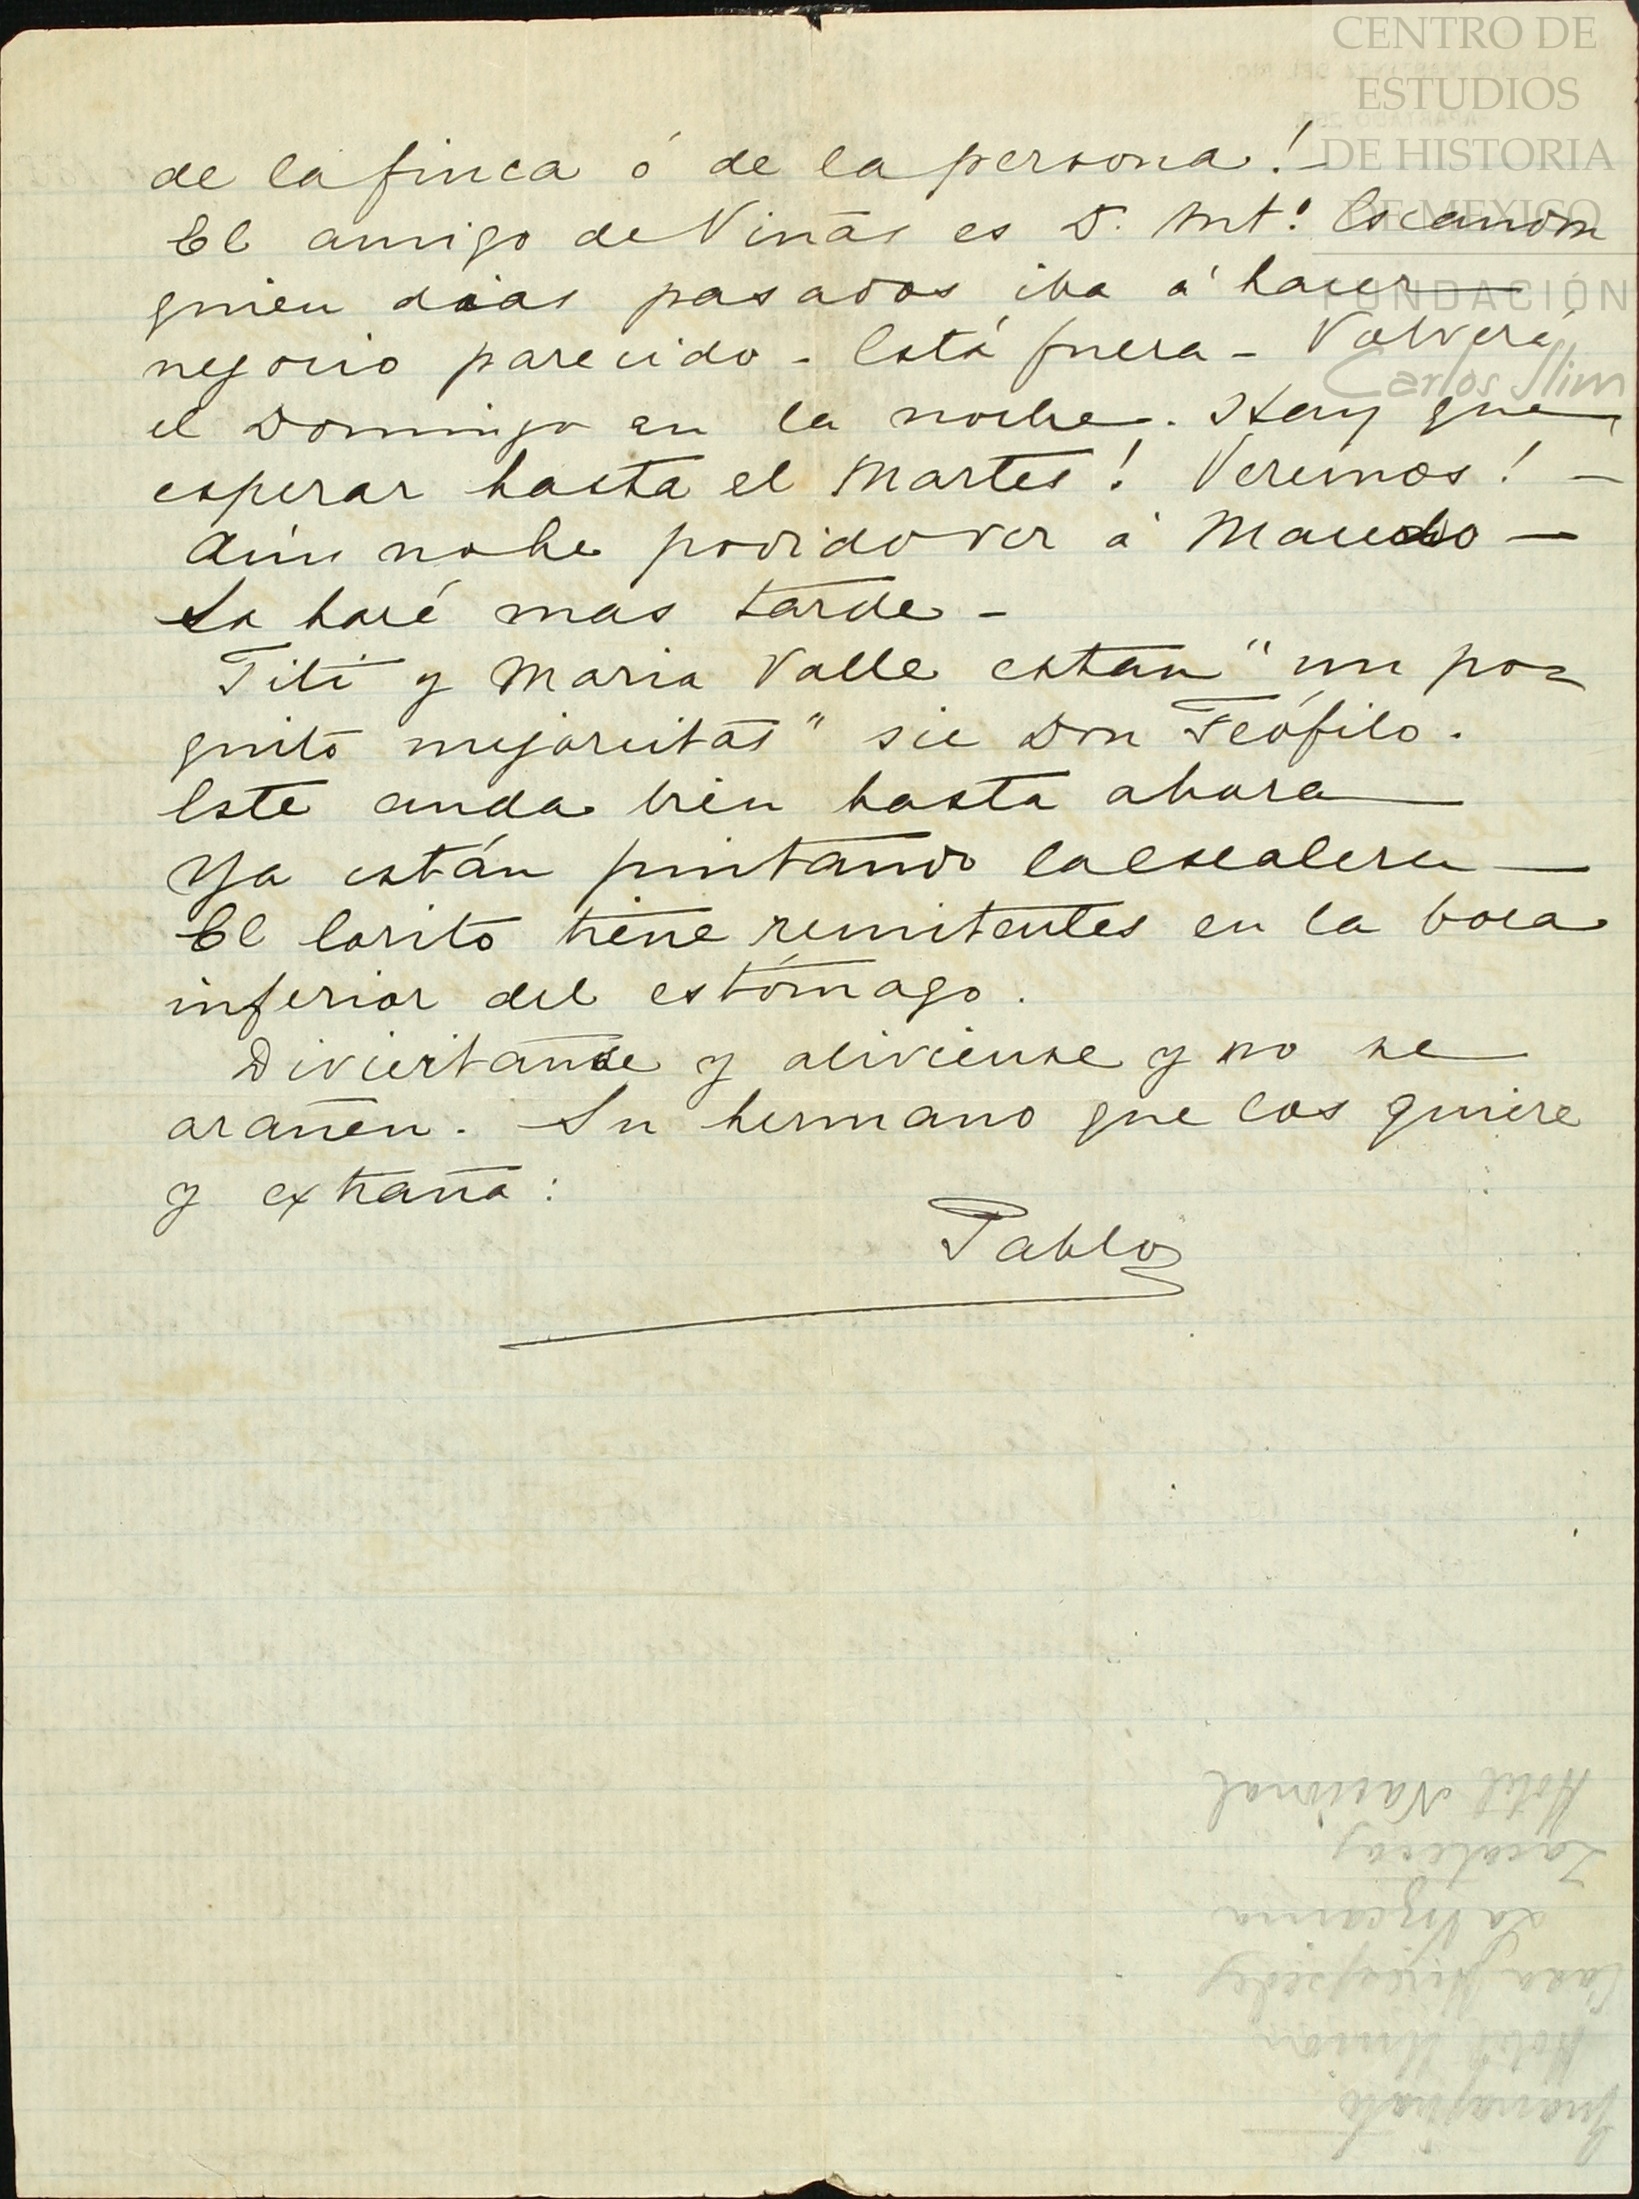 CENTRO DE
ESTUDIOS
DE HISTORIA
DE MEXICO
FUNDACIÓN
Carlos Slim
de la finca ó de la persona! —
El amigo de Viñas es D. Ant.º Escandon
quien dias pasados iba á hacer
negocio parecido - Está fuera - Volverá
el Domingo en la noche. Hay que
esperar hasta el Martes! Veremos! —
Aún no he podido ver á —
Lo haré mas tarde -
Titi y Maria Valle estan "un po-
quito mejorcitas" sic Don Teófilo.
Este anda bien hasta ahora —
Ya están pintando la escalera —
El lorito tiene remitentes en la boca
inferior del estómago.
Diviertanse y aliviense y no se
arañen. Su hermano que los quiere
y extraña:
Pablo
Guanajuato
Hotel Unión
Casa
La Vizcaina
Zacatecas
Hotel Nacional